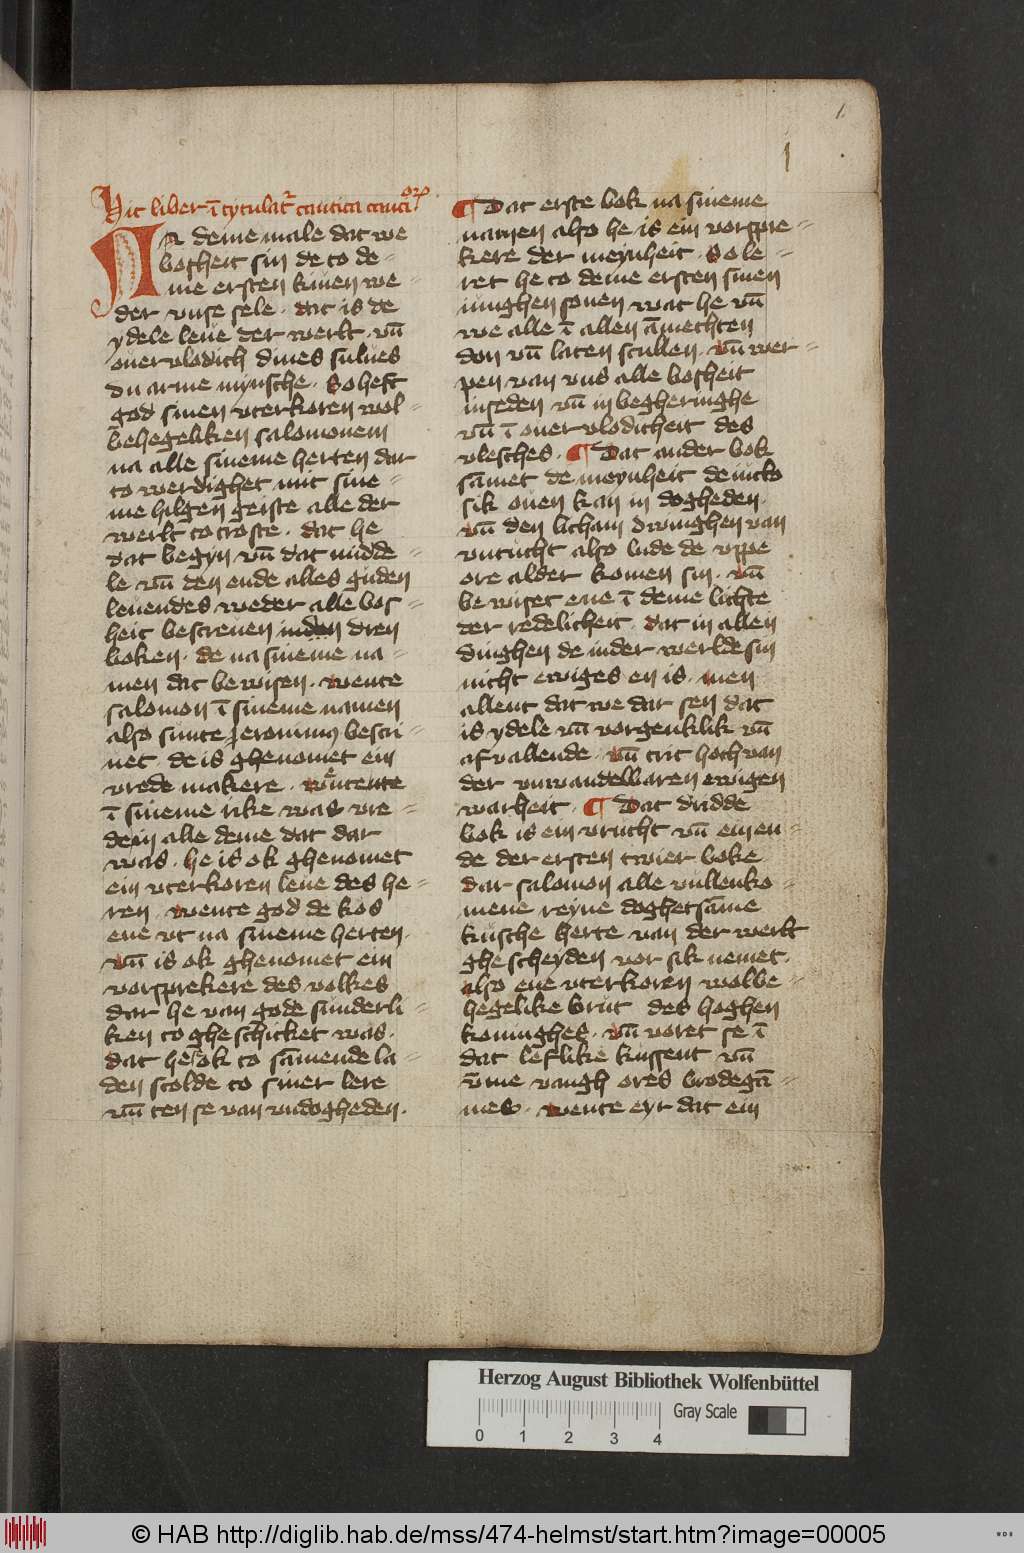 1
1
Hic liber ī tytulat᷑ cantica canticoꝝ
NA deme male dat we
bosheit sin de to de=
me ersten kinen we=
der vnse sele · dat is de
ydele leue der werlt · vn̄
ouervlodich dines sulues
du arme mynsche · So heft
god sinen vterkoren wol=
behegeliken salomonem
na alle sineme herten dar
to werdighet mit sine=
me hilgen geiste alle der
werlt to troste · dat he
dat begyn vn̄ dat midde=
le vn̄ den ende alles guden
leuendes weder alle bos=
heit bescreuen in den dren
boken · de na sineme na=
men dat bewisen · wente
salomon ī sineme namen
also sunte jeronimꝰ bescri=
uet · de is ghenomet ein
vrede makere · wente
ī sineme rike was vre=
de in alle deme dat dar
was · he is ok ghenomet
ein vterkoren leue des he=
ren · wente god de kos
ene vt na sineme herten ·
vn̄ is ok ghenomet ein
vorsprekere des volkes
dar he van gode sunderli=
ken to gheschicket was ·
dat he ok to sāmende la=
den scolde to siner lere
vn̄ ten se van vndogheden ·
¶ Dat erste bok na sineme
namen also he is ein vorspre=
kere der meynheit · So le=
ret he to deme ersten sinen
iunghen sonen wat he vn̄
we alle ī allen āmechten
don vn̄ laten scullen · vn̄ wer=
pen van vns alle bosheit
in seden vn̄ in begheringhe
vn̄ ī ouervlodicheit des
vlesches · ¶ Dat ander bok
sāmet de meynheit de iucko
sik ouen kan in dogheden ·
vn̄ den licham dwinghen van
vntucht also lude de vppe
ore alder komen sin · vn̄
bewiset ene ī deme lichte
der redelicheit · dat in allen
dinghen de in der werlde sin
nicht ewiges en is · men
allent dat we dar sen dat
is ydele vn̄ vorgenklik vn̄
afvallende · vn̄ trit hoch van
der vnwandelbaren ewigen
warheit · ¶ Dat dridde
bok is ein vrucht vn̄ ein en=
de der ersten twier boke
dar salomon alle vullenko=
mene reyne doghetsāme
kusche herte van der werlt
ghescheyden vor sik nemet ·
also ene vterkoren wolbe=
hegelike brut des hoghen
koninghes · vn̄ voret se ī
dat leflike kussent vn̄
vme vangh ores brodegā=
mes · wente eyr dat ein
Herzog August Bibliothek Wolfenbüttel
Gray Scale
0 1 2 3 4
© HAB http://diglib.hab.de/mss/474-helmst/start.htm?image=00005